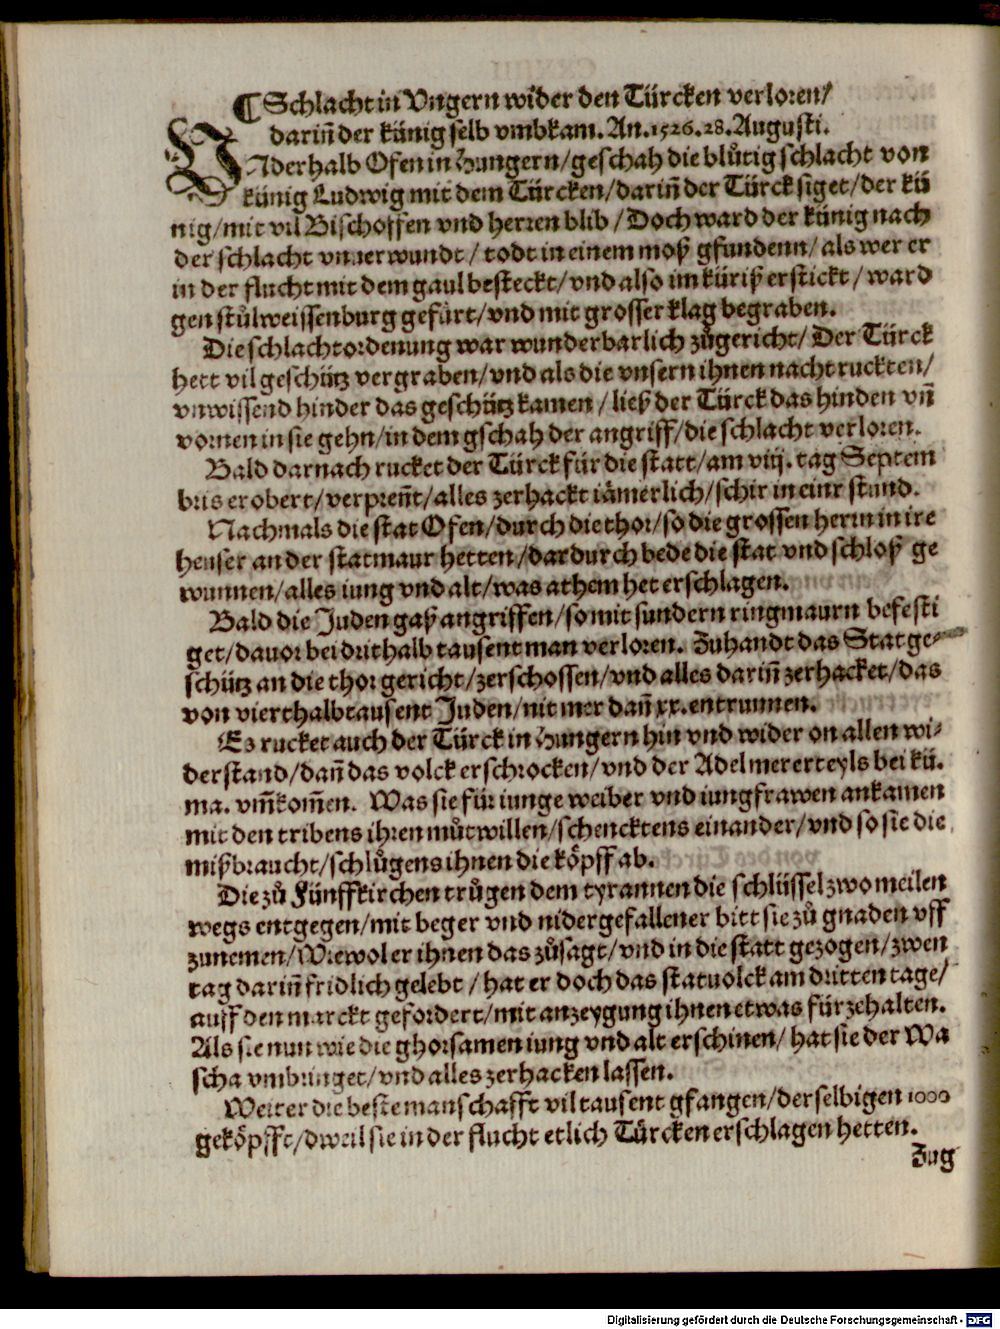 ¶ Schlacht in Vngern wider den Türcken verloren/
dariñ der künig selb vmbkam. An. 1526. 28. Augusti.
NIderhalb Ofen in Hungern/geschah die blůtig schlacht von
künig Ludwig mit dem Türcken/dariñ der Türck siget/der kü
nig/mit vil Bischoffen vnd herren blib / Doch ward der künig nach
der schlacht vnuerwundt / todt in einem moß gfundenn/ als wer er
in der flucht mit dem gaul besteckt/vnd also im küriß erstickt / ward
gen stůlweissenburg gefürt/vnd mit grosser klag begraben.
Die schlachtordenung war wunderbarlich zůgericht/ Der Türck
hett vil geschütz vergraben/vnd als die vnsern ihnen nacht ruckten/
vnwissend hinder das geschütz kamen / ließ der Türck das hinden vñ
vornen in sie gehn/in dem gschah der angriff/die schlacht verloren.
Bald darnach rucket der Türck für die statt/am viij. tag Septem
bris erobert/verpreñt/alles zerhackt iämerlich/schir in einr stund.
Nachmals die stat Ofen/durch die thor/so die grossen herrn in ire
heuser an der statmaur hetten/dardurch bede die stat vnd schloß ge
wunnen/alles iung vnd alt/was athem het erschlagen.
Bald die Juden gaß angriffen/so mit sundern ringmaurn befesti
get/dauor bei drithalb tausent man verloren. Zuhandt das Stat ge-
schütz an die thor gericht/zerschossen/vnd alles dariñ zerhacket/das
von vierthalbtausent Juden/nit mer dañ xx. entrunnen.
Es rucket auch der Türck in Hungern hin vnd wider on allen wi-
derstand/dañ das volck erschrocken/vnd der Adel merer teyls bei kü.
ma. vm̃komen. Was sie für iunge weiber vnd iungfrawen ankamen
mit den tribens ihren můtwillen/schencktens einander/vnd so sie die
mißbraucht/schlůgens ihnen die köpff ab.
Die zů Fünffkirchen trůgen dem tyrannen die schlüssel zwo meilen
wegs entgegen/mit beger vnd nidergefallener bitt sie zů gnaden vff
zunemen/Wiewol er ihnen das zůsagt/vnd in die statt gezogen/zwen
tag dariñ fridlich gelebt / hat er doch das statuolck am dritten tage/
auff den marckt gefordert/mit anzeygung ihnen etwas fürzehalten.
Als sie nun wie die ghorsamen iung vnd alt erschinen/ hat sie der Wa
scha vmbringet/vnd alles zerhacken lassen.
Weiter die beste manschafft vil tausent gfangen/derselbigen 1000
geköpfft/dweil sie in der flucht etlich Türcken erschlagen hetten.
Zug
Digitalisierung gefördert durch die Deutsche Forschungsgemeinschaft - DFG